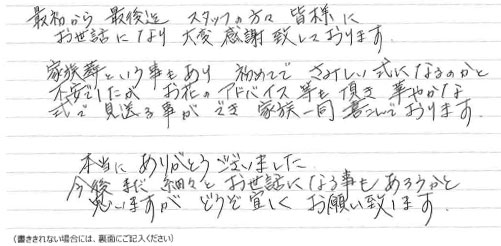 最初から 最後迄 スタッフの方々 皆様に
お世話になり 大変 感謝 致しております.
家族葬という事もあり 初めてで さみしい式になるのかと
不安でしたが お花のアドバイス等も頂き 華やかな
式で 見送る事ができ 家族一同 喜こんでおります.
本当に ありがとうございました.
今後 まだ 細々と お世話になる事も あろうかと
思いますが どうぞ宜しく お願い致します.
(書ききれない場合には、裏面にご記入ください)